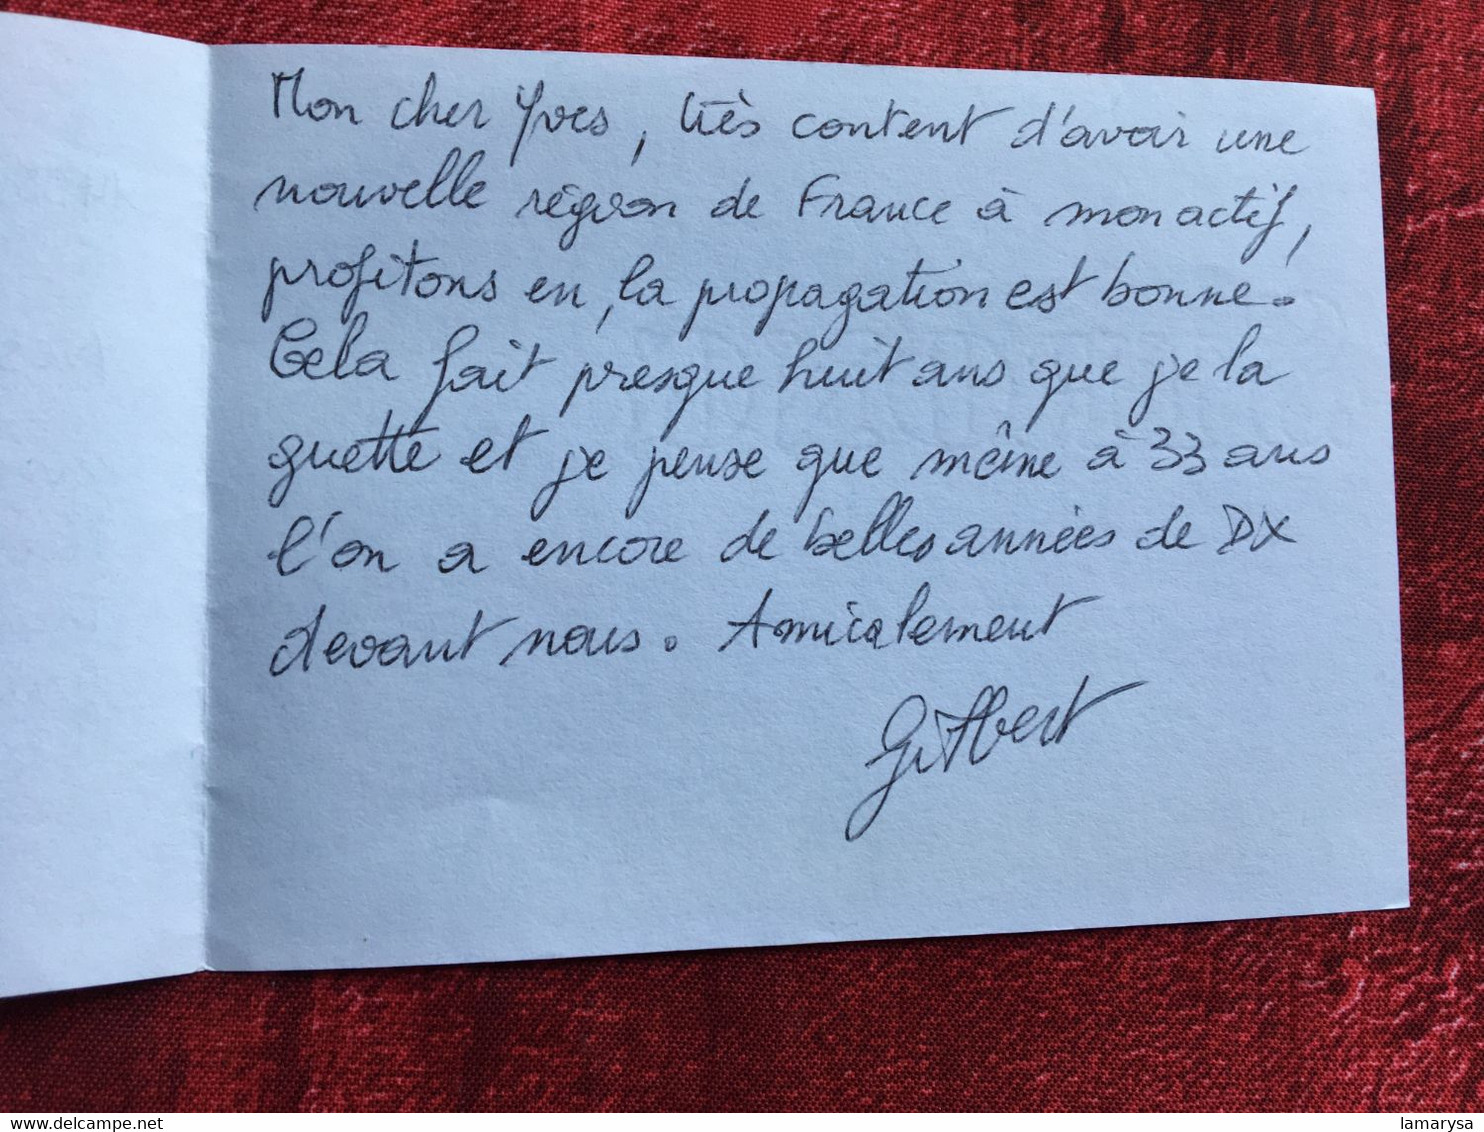 Mon cher Yves, très content d'avoir une
nouvelle région de France à mon actif,
profitons en, la propagation est bonne.
Cela fait presque huit ans que je la
guette et je pense que même à 33 ans
l'on a encore de belles années de DX
devant nous. Amicalement
Gilbert
lamarysa